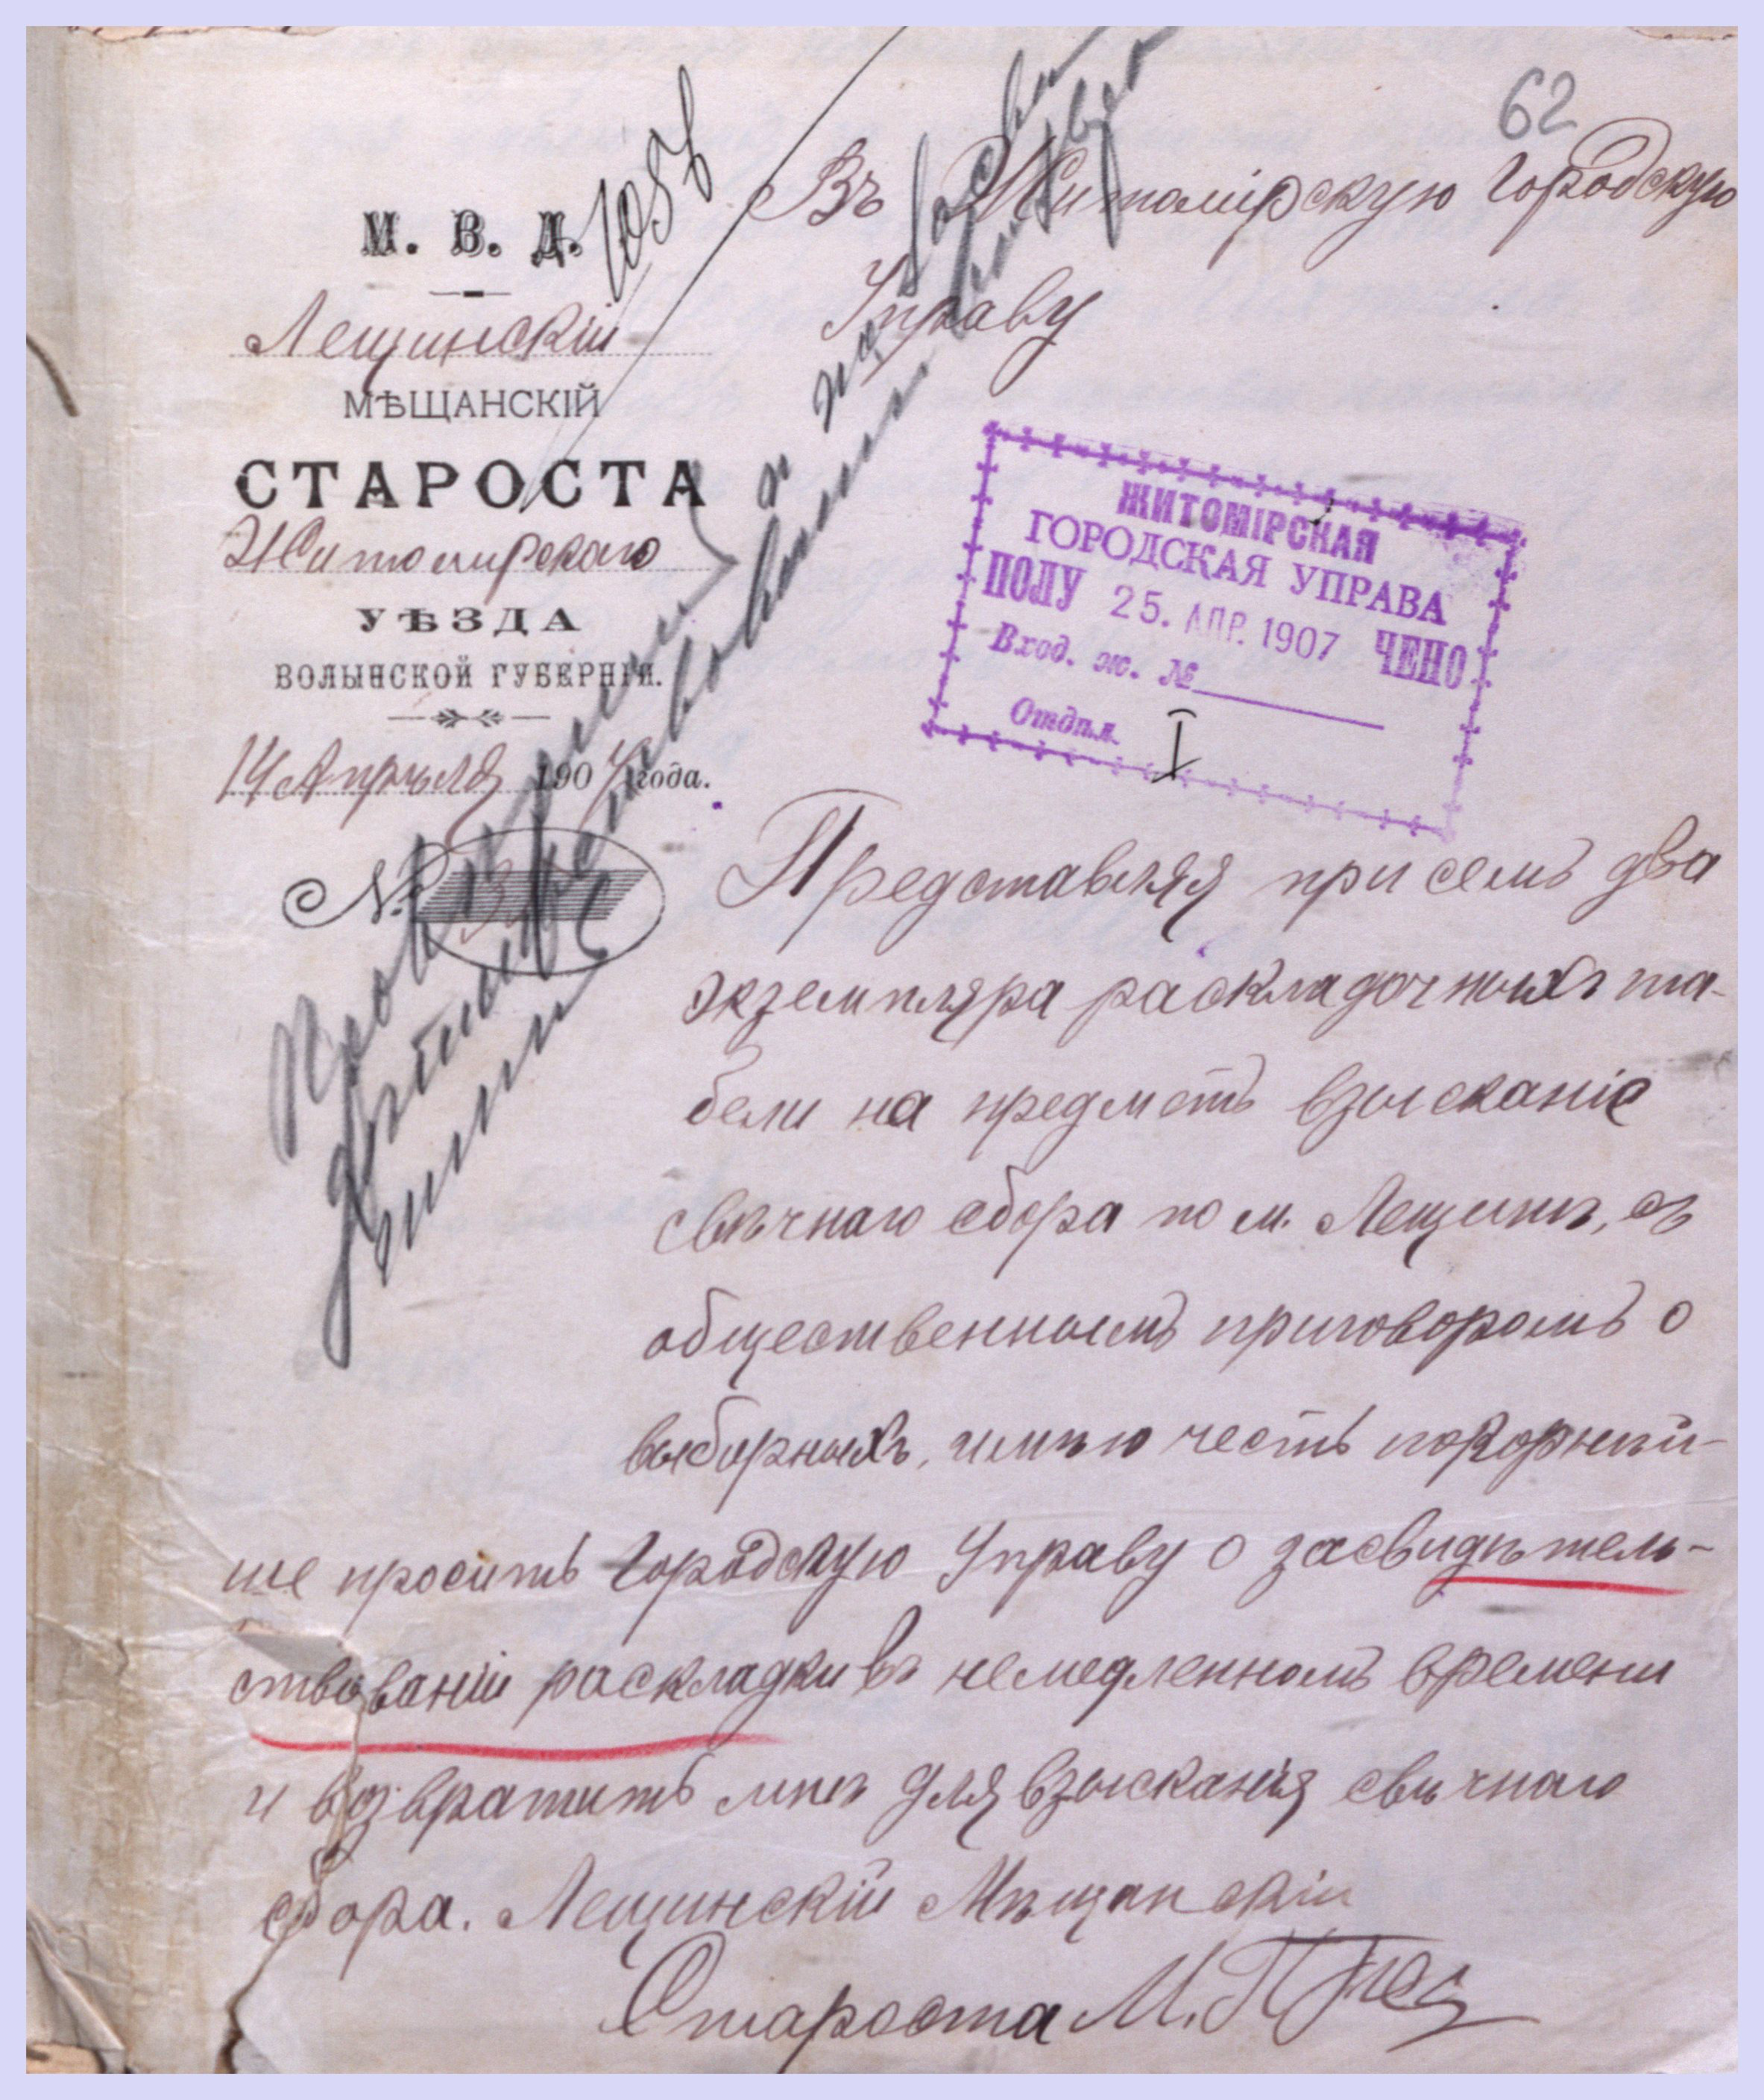 62
М. В. Д.
1056
Лещинскій
МѢЩАНСКІЙ
СТАРОСТА
Житомирскаго
УѢЗДА
ВОЛЫНСКОЙ ГУБЕРНІИ.
14 Апрѣля 1907 года.
№
Въ Житомірскую Городскую
Управу
ЖИТОМІРСКАЯ
ГОРОДСКАЯ УПРАВА
ПОЛУ 25. АПР. 1907 ЧЕНО
Вход. ж. №
Отдѣл. I
Представляя при семъ два
экземпляра раскладочныхъ та-
бели на предметъ взысканіе
свѣчнаго сбора по м. Лещинѣ, съ
общественнымъ приговоромъ о
выборныхъ, имѣю честь покорнѣй-
ше просить Городскую Управу о засвидѣтель-
ствованіи раскладки въ немедленномъ времени
и возвратить мнѣ для взысканія свѣчнаго
сбора. Лещинскій Мѣщанскій
Староста М.